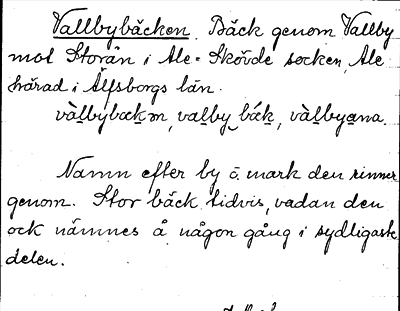 Vallbybäcken. Bäck genom Vallby
mot Storån i Ale-Skövde socken, Ale
härad i Älfsborgs län.
vàlbybäckən, valby bäk, vàlbyana.
Namn efter by å mark den rinner
genom. Stor bäck tidvis, vadan den
ock nämnes å någon gång i sydligaste
delen.